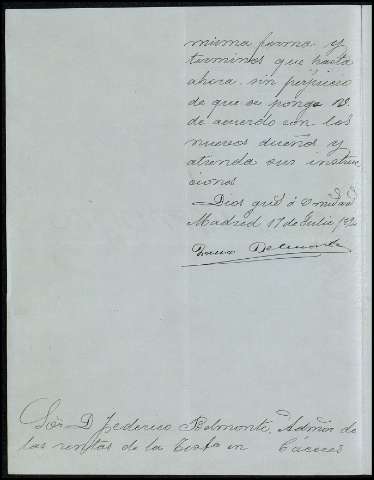 misma forma y
terminos que hasta
ahora sin perjuicio
de que se ponga V.
de acuerdo con los
nuevos dueños y
atienda sus instruc
ciones
= Dios gue á V m. a.
Madrid 17 de Julio
Belmonte
Sor. D Federico Belmonte, Admor de
las rentas de la Testa en Cáceres